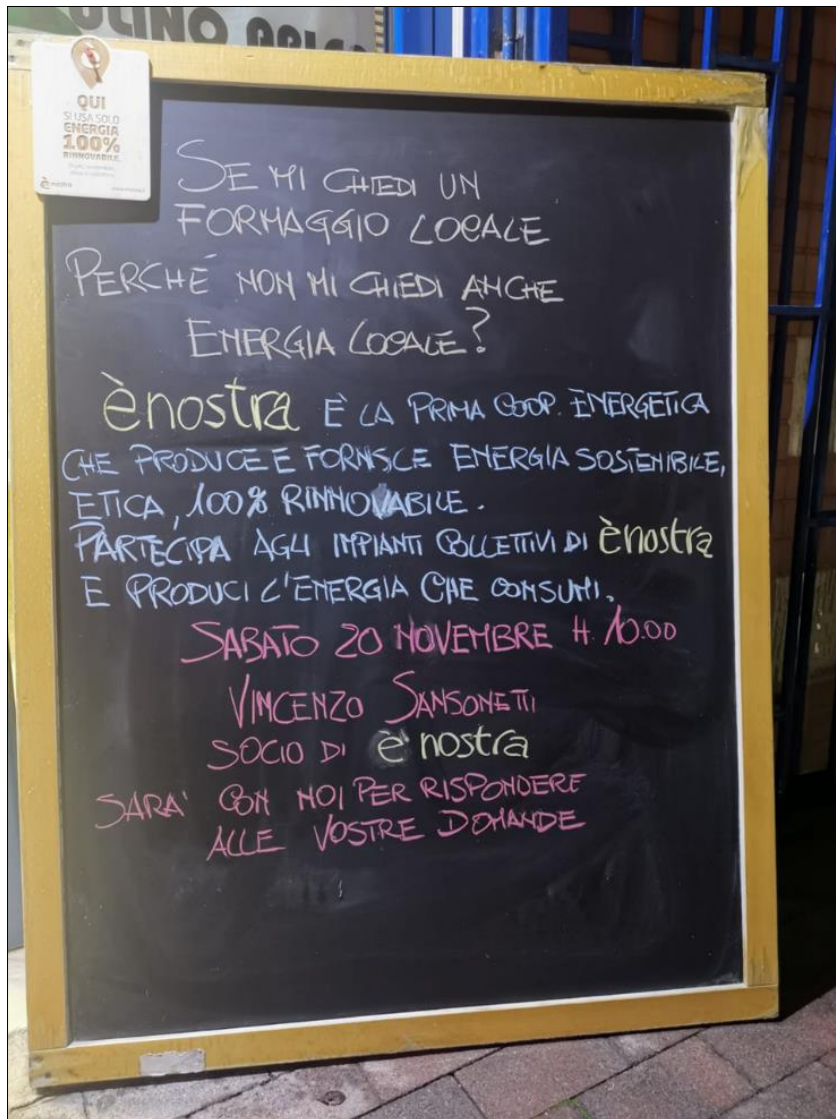 QUI
SI USA SOLO
ENERGIA
100%
RINNOVABILE.
è nostra
SE MI CHIEDI UN
FORMAGGIO LOCALE
PERCHÉ NON MI CHIEDI ANCHE
ENERGIA LOCALE?
ènostra È LA PRIMA COOP. ENERGETICA
CHE PRODUCE E FORNISCE ENERGIA SOSTENIBILE,
ETICA, 100% RINNOVABILE.
PARTECIPA AGLI IMPIANTI COLLETTIVI DI ènostra
E PRODUCI L'ENERGIA CHE CONSUMI.
SABATO 20 NOVEMBRE H. 10.00
VINCENZO SANSONETTI
SOCIO DI è nostra
SARA' CON NOI PER RISPONDERE
ALLE VOSTRE DOMANDE